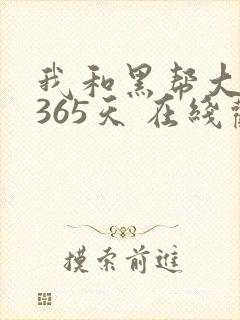 我和黑帮大
365天 在线
摸索前進